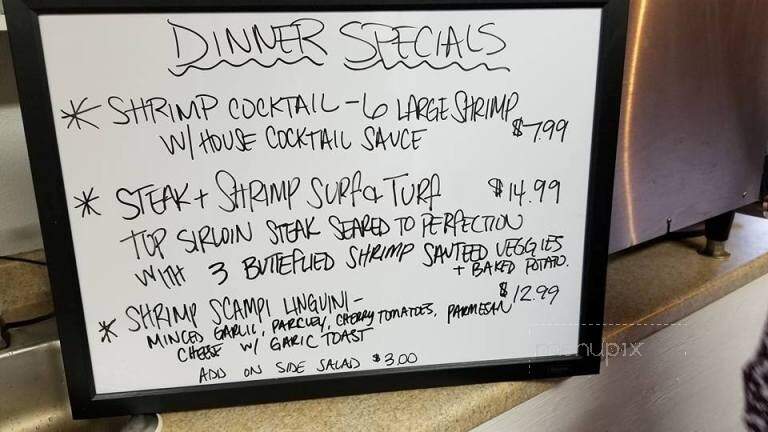 DINNER SPECIALS
* SHRIMP COCKTAIL - 6 LARGE SHRIMP
W/ HOUSE COCKTAIL SAUCE $7.99
* STEAK + SHRIMP SURF & TURF $14.99
TOP SIRLOIN STEAK SEARED TO PERFECTION
WITH 3 BUTTEFLIED SHRIMP SAUTEED VEGGIES
+ BAKED POTATO.
* SHRIMP SCAMPI LINGUINI - $12.99
MINCED GARLIC, PARCLEY, CHERRY TOMATOES, PARMESAN
CHEESE W/ GARIC TOAST
ADD ON SIDE SALAD $3.00
menupix